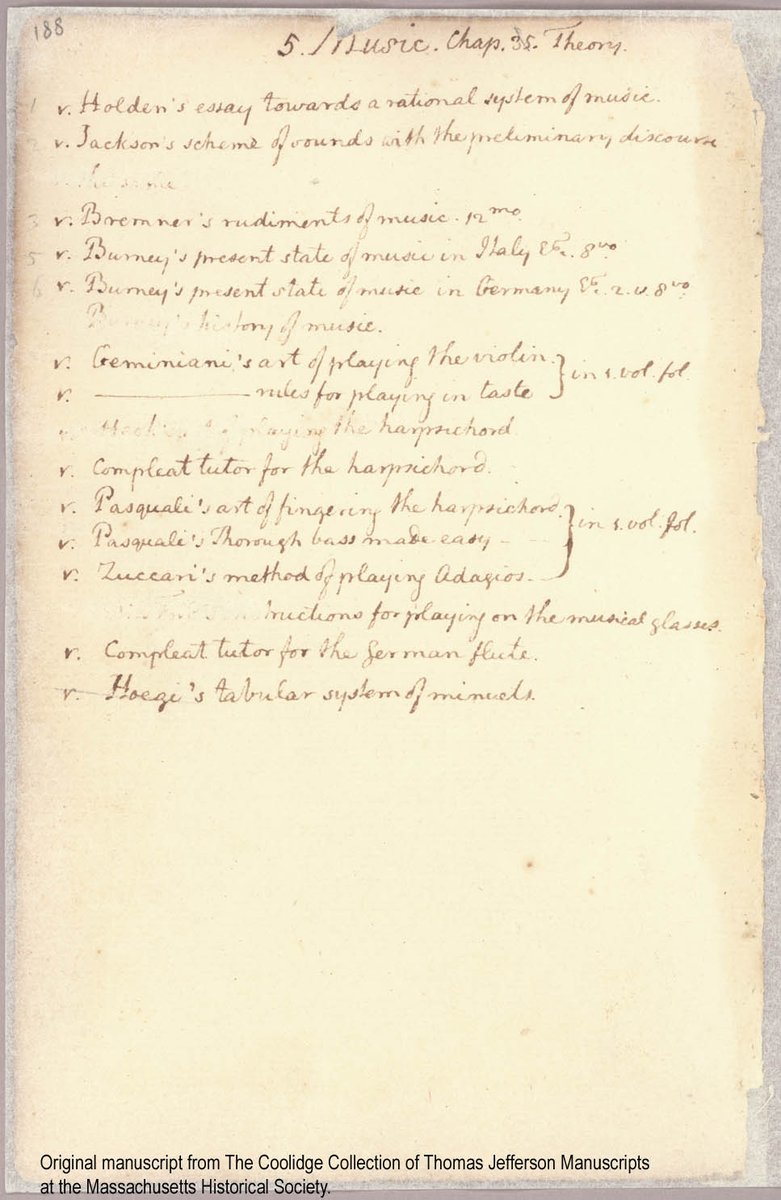 188
5. Music. Chap. 35. Theory.
1 v. Holden's essay towards a rational system of music.
2 v. Jackson's scheme of sounds with the preliminary discourse
the same
3 v. Bremner's rudiments of music. 12mo.
5 v. Burney's present state of music in Italy &c. 8vo
6 v. Burney's present state of music in Germany &c. 2. v. 8vo.
Burney's history of music.
v. Geminiani's art of playing the violin. } in 1. vol. fol.
v. ———— rules for playing in taste
of playing the harpsichord
v. Compleat tutor for the harpsichord.
v. Pasquali's art of fingering the harpsichord. } in 1. vol. fol.
v. Pasquali's Thorough bass made easy
v. Zuccari's method of playing Adagios.
instructions for playing on the musical glasses.
v. Compleat tutor for the German flute.
v. Hoegi's tabular system of minuets.
Original manuscript from The Coolidge Collection of Thomas Jefferson Manuscripts
at the Massachusetts Historical Society.